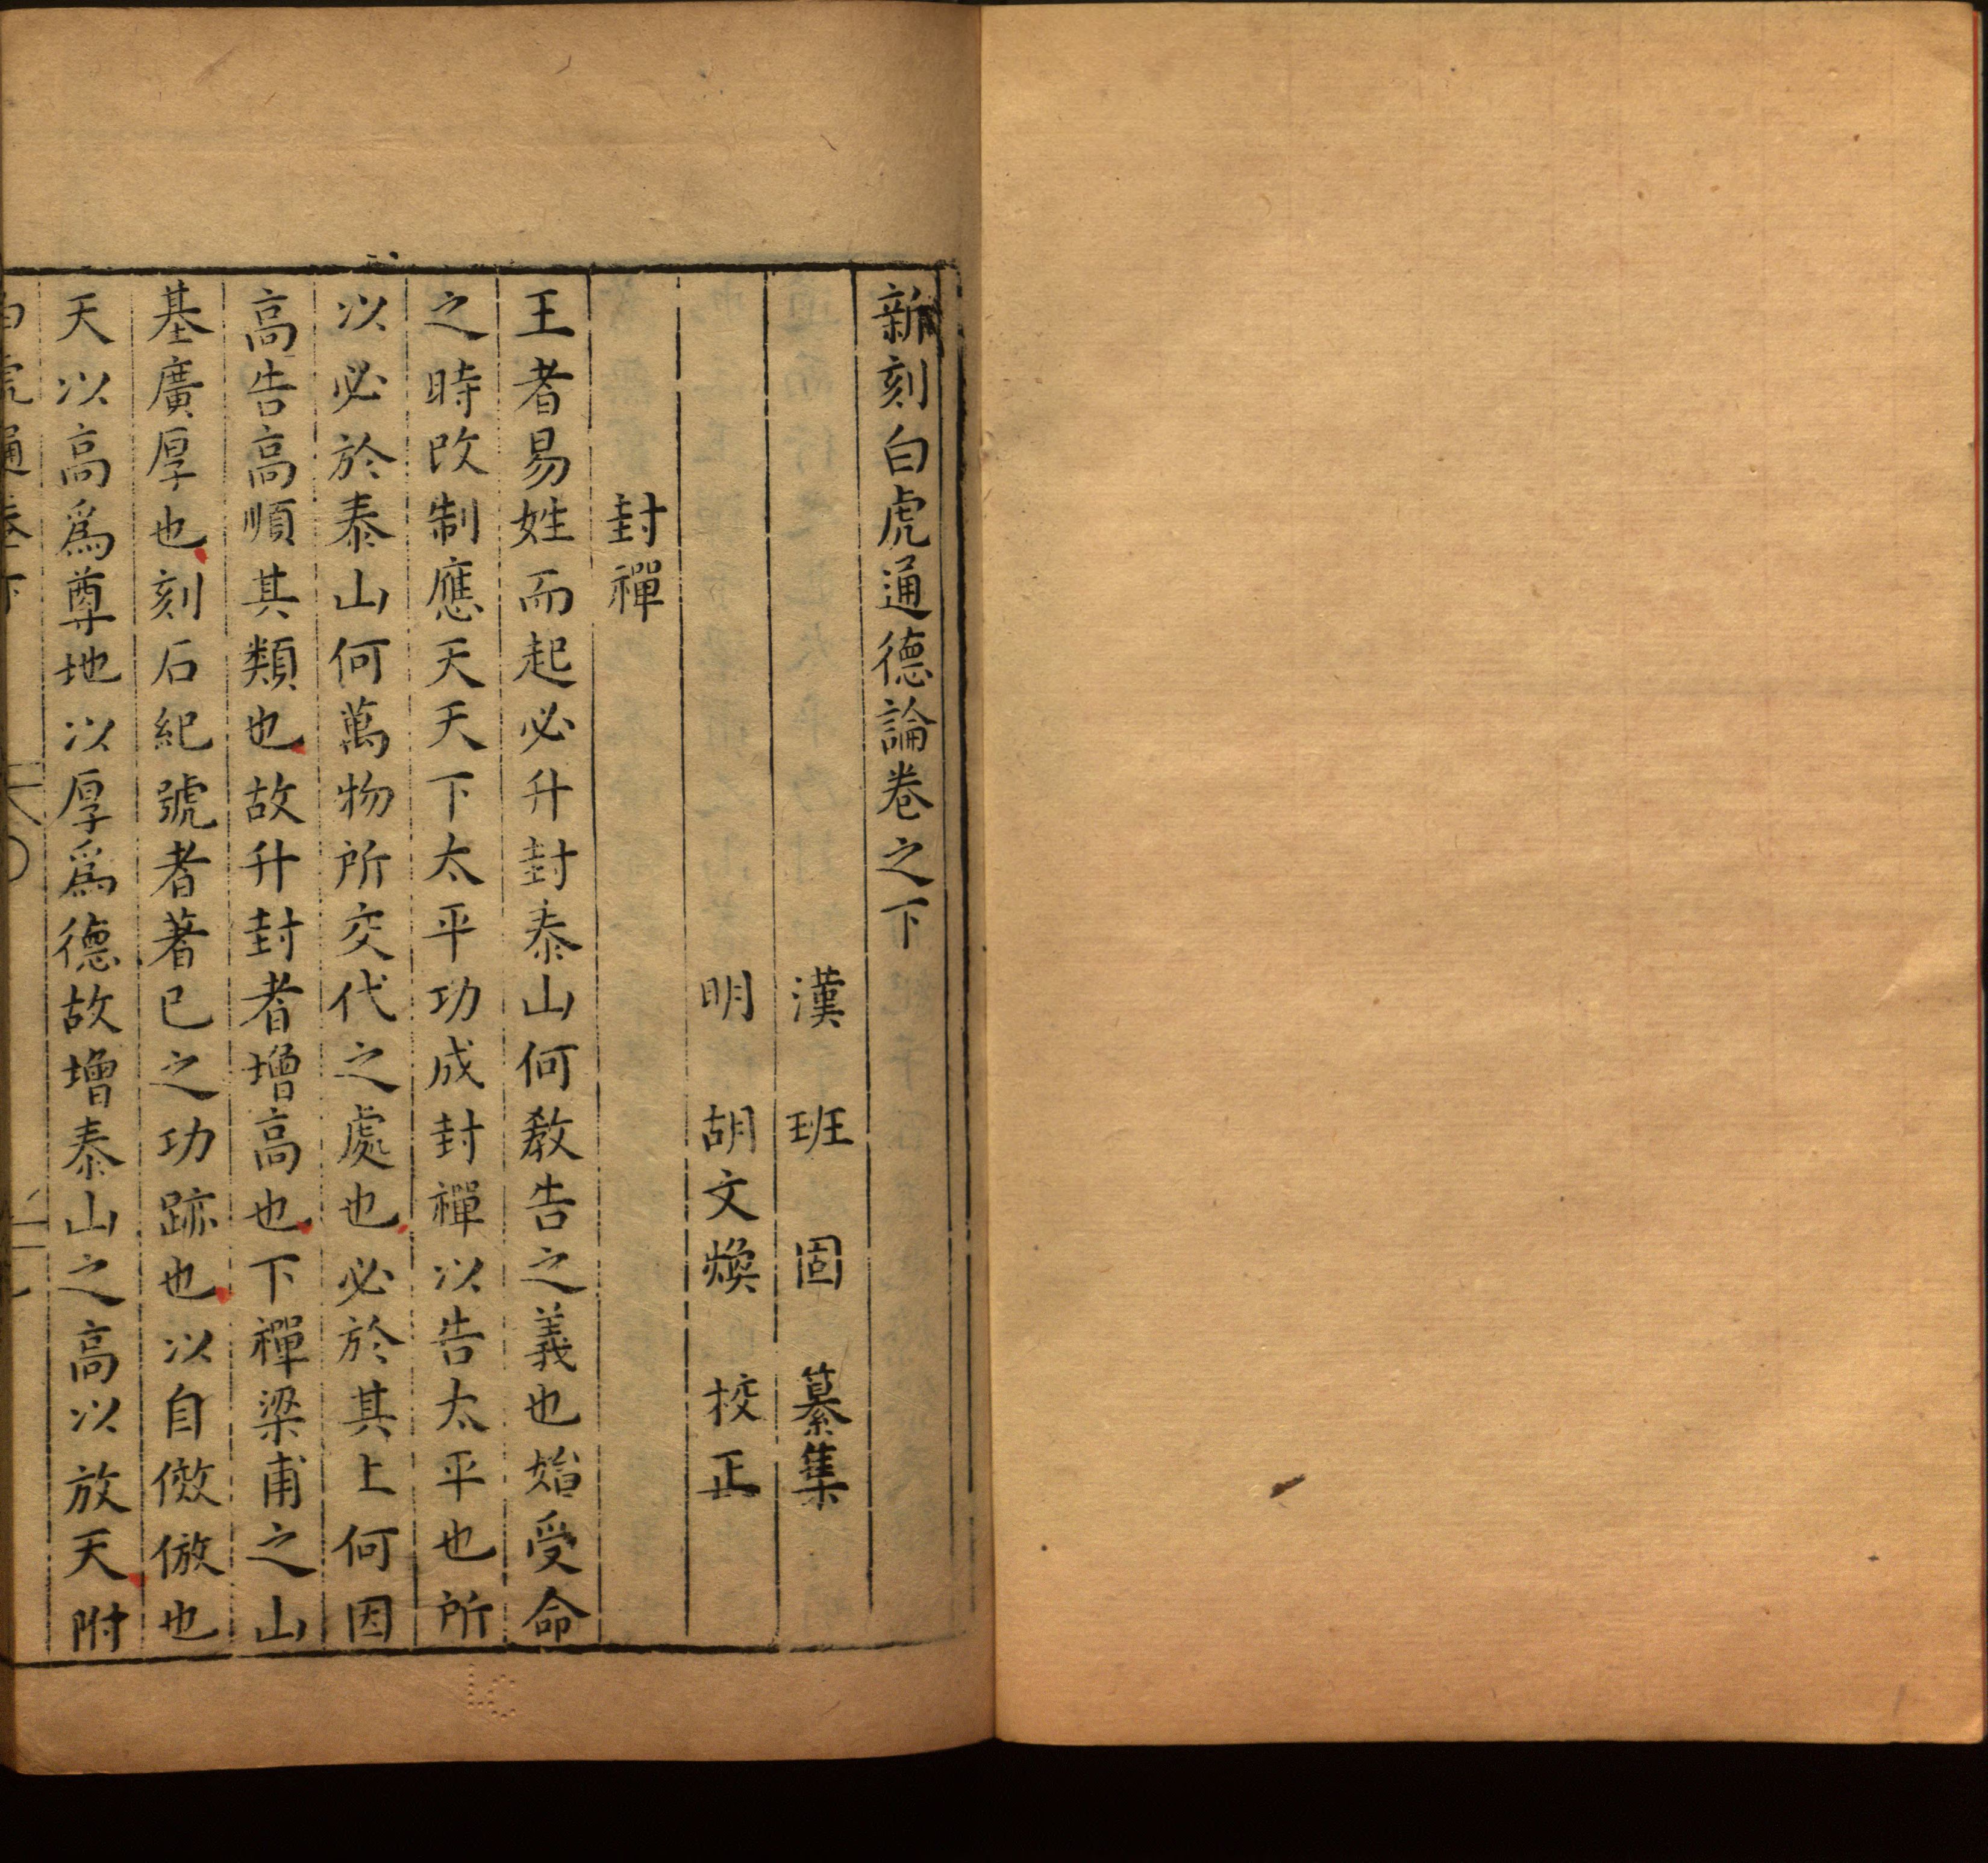 新刻白虎通德論卷之下
漢 班 固 纂集
明 胡文煥 校正
封禪
王者易姓而起必升封泰山何敎告之義也始受命
之時改制應天天下太平功成封禪以告太平也所
以必於泰山何萬物所交代之處也必於其上何因
高告高順其類也故升封者增高也下禪梁甫之山
基廣厚也刻石紀號者著己之功跡也以自傚倣也
天以高爲尊地以厚爲德故增泰山之高以放天附
白虎通卷下